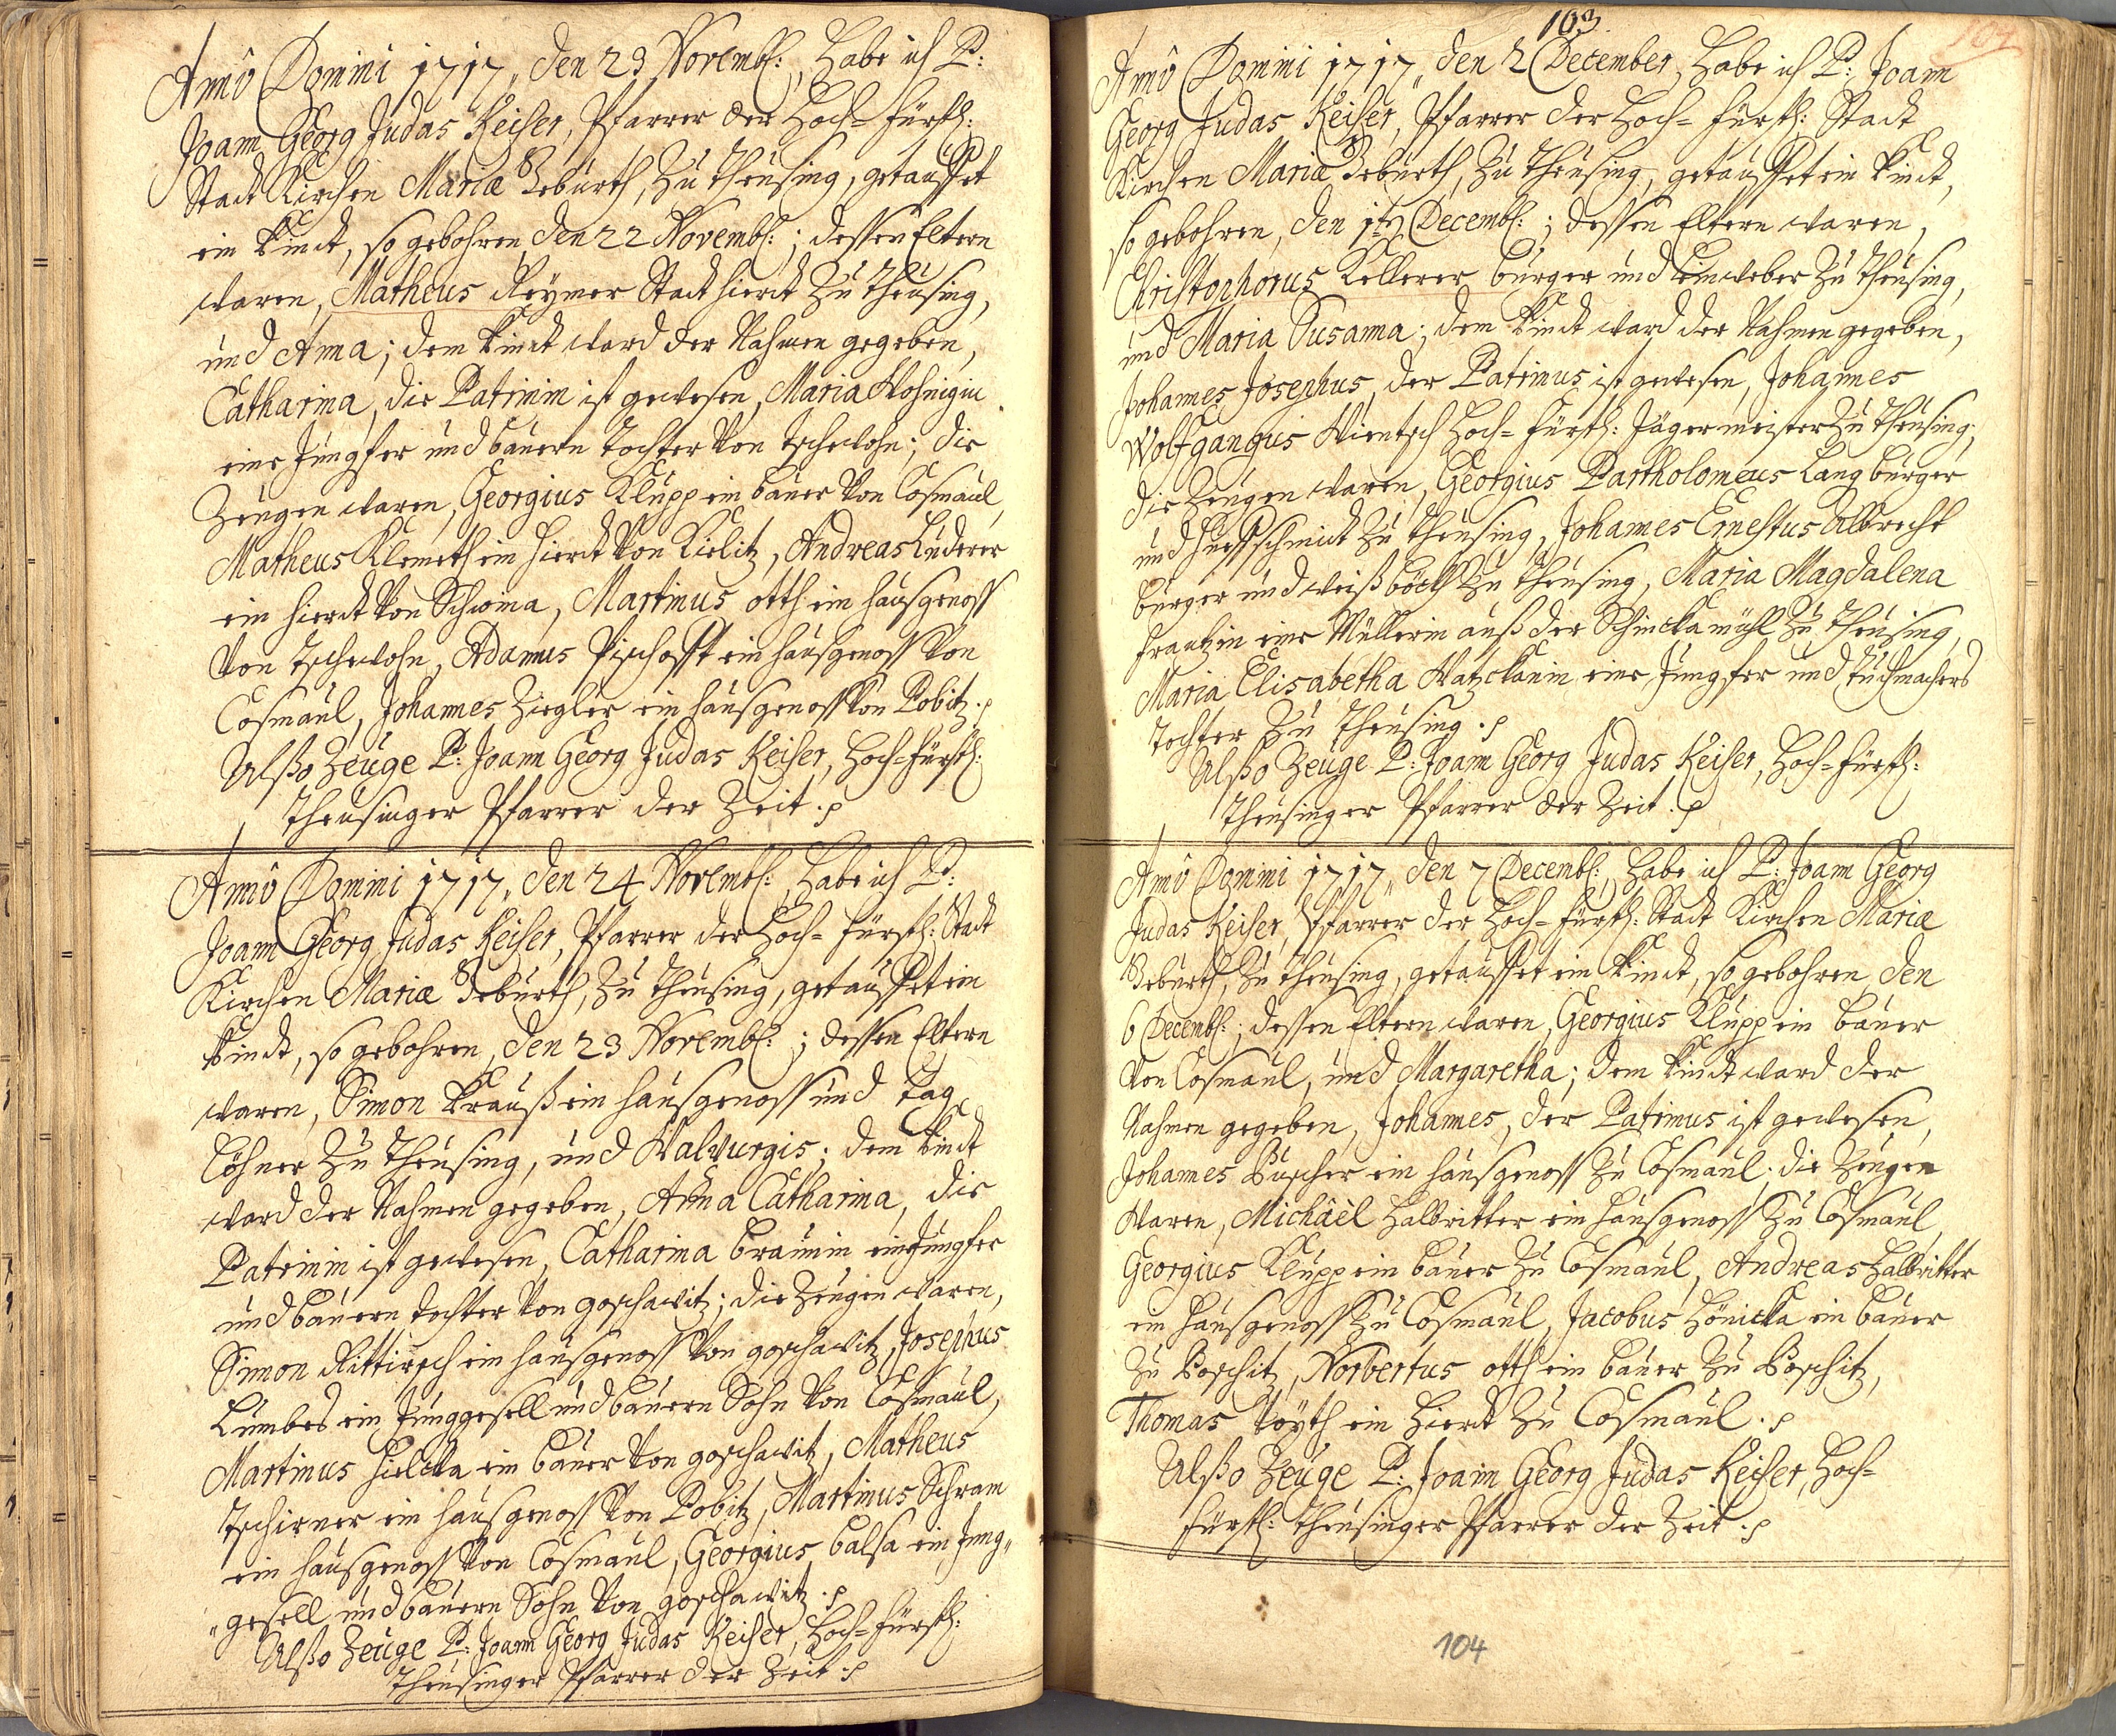 Anno Domini 1717, den 23 Novemb:, habe ich P:
Joann Georg Judas Keiser, Pfarrer der Hoch-Fürstl:
Stadt Kirchen Mariæ Geburth, zu Theusing, getauffet
ein Kindt, so gebohren, den 22 Novemb: ; dessen Eltern
waren, Matheus Reymer Stadt hierdt zu Theusing,
und Anna; dem Kindt ward der Nahmen gegeben,
Catharina, die Patrinin ist gewesen, Maria
eine Jungfer und bauern Tochter von Tschebohn; die
Zeugen waren, Georgius Klupp ein bauer von Cosmaul,
Matheus Klemeth ein hierdt von Kielitz, Andreas Luderer
ein hierdt von Schwina, Martinus Otth ein haußgenoss
von Tschebohn, Adamus Pischofft ein haußgenoss von
Cosmaul, Johannes Ziegler ein haußgenoss von Pobitz.
Alßo Zeuge P: Joann Georg Judas Keiser, Hoch-Fürstl:
Theusinger Pfarrer der Zeit.
Anno Domini 1717, den 24 Novemb:, habe ich P:
Joann Georg Judas Keiser, Pfarrer der Hoch-Fürstl: Stadt
Kirchen Mariæ Geburth, zu Theusing, getauffet ein
Kindt, so gebohren, den 23 Novemb: ; dessen Eltern
waren, Simon Krauß ein haußgenoss und Tag
Löhner zu Theusing, und Walburgis; dem Kindt
ward der Nahmen gegeben, Anna Catharina, die
Patrinin ist gewesen, Catharina Braunin, ein Jungfer
und bauern Tochter von Goschawitz; die Zeugen waren,
Simon Rittirsch ein haußgenoss von Goschawitz, Josephus
Lumbes ein Junggesell und bauern Sohn von Cosmaul,
Martinus Hielcka ein bauer von Goschawitz, Matheus
Tschirner ein haußgenoss von Pobitz, Martinus Schram
ein haußgenoss von Cosmaul, Georgius Balsa ein Jung„
„gesell und bauern Sohn von Goschawitz.
Alßo Zeuge P: Joann Georg Judas Keiser, Hoch-Fürstl:
Theusinger Pfarrer der Zeit.
103
104
Anno Domini 1717, den 2 December, habe ich P: Joann
Georg Judas Keiser, Pfarrer der Hoch-Fürstl: Stadt
Kirchen Mariæ Geburth, zu Theusing, getauffet ein Kindt,
so gebohren, den 1ten Decemb: ; dessen Eltern waren,
Christophorus Kellerer bürger und Leinweber zu Theusing,
und Maria Susanna; dem Kindt ward der Nahmen gegeben,
Johannes Josephus, der Patrinus ist gewesen, Johannes
Wolfgangus Wientsch Hoch-Fürstl: Jägermeister zu Theusing;
die Zeugen waren, Georgius Partholomeus Lang bürger
und Hueffschmidt zu Theusing, Johannes Ernestus Albrecht
bürger und weißböckh zu Theusing, Maria Magdalena
Frantzin eine Müllerin auß der Schinckamühl zu Theusing,
Maria Elisabetha Watzckanin eine Jungfer und Tuchmachers
Tochter zu Theusing.
Alßo Zeuge P: Joann Georg Judas Keiser, Hoch-Fürstl:
Theusinger Pfarrer der Zeit.
Anno Domini 1717, den 7 Decemb:, habe ich P: Joann Georg
Judas Keiser, Pfarrer der Hoch-Fürstl: Stadt Kirchen Mariæ
Geburth, zu Theusing, getauffet ein Kindt, so gebohren, den
6 Decemb: ; dessen Eltern waren, Georgius Klupp ein bauer
von Cosmaul, und Margaretha; dem Kindt ward der
Nahmen gegeben, Johannes, der Patrinus ist gewesen,
Johannes Puscher ein haußgenoss zu Cosmaul; die Zeugen
waren, Michäel Halbritter ein haußgenoss zu Cosmaul,
Georgius Klupp ein bauer zu Cosmaul, Andreas Halbritter
ein haußgenoss zu Cosmaul, Jacobus Hönicka ein bauer
zu Poschitz, Norbertus Otth ein bauer zu Poschitz,
Thomas Voyth ein hierdt zu Cosmaul.
Alßo Zeuge P: Joann Georg Judas Keiser, Hoch-
Fürstl: Theusinger Pfarrer der Zeit.
104